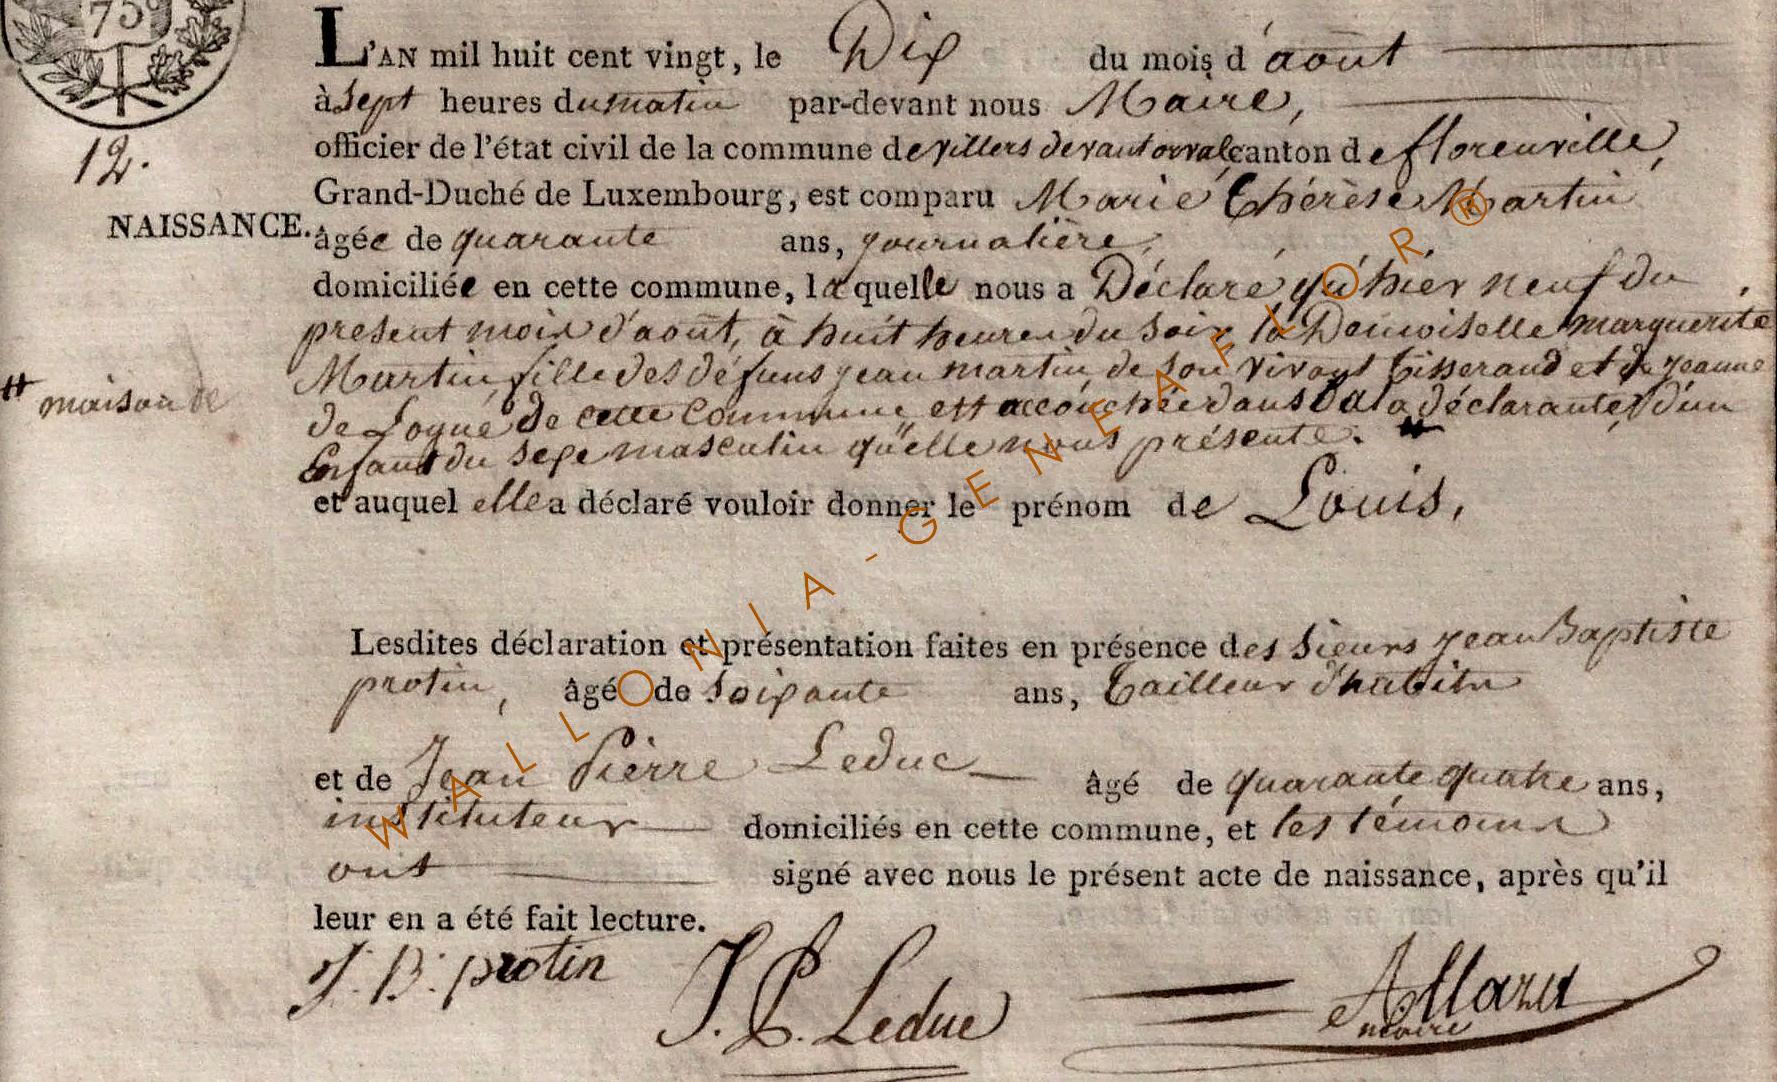 75
L'AN mil huit cent vingt, le Dix du mois d'août
à sept heures du matin par-devant nous Maire,
officier de l'état civil de la commune de villers devant orval canton de florenville,
12.
Grand-Duché de Luxembourg, est comparu Marie Thérèse Martin
NAISSANCE.
âgée de quarante ans, journalière,
domiciliée en cette commune, laquelle nous a Déclaré qu'hier neuf du
present mois d'août, à huit heures du soir la Demoiselle marguerite
Martin, fille des défuns jean martin de son vivant tisserand et de jeanne
maison de
de Loyué de cette commune est accouchée dans la déclarante, d'un
Enfant du sexe masculin qu'elle nous présente.
et auquel elle a déclaré vouloir donner le prénom de Louis,
Lesdites déclaration et présentation faites en présence des sieurs jean Baptiste
protin, âgé de soixante ans, tailleur d'habits
et de Jean Pierre Leduc âgé de quarante quatre ans,
instituteur domiciliés en cette commune, et les témoins
ont signé avec nous le présent acte de naissance, après qu'il
leur en a été fait lecture.
J. B. protin J. P. Leduc
maire
WALLONIA-GENEAFLOR®